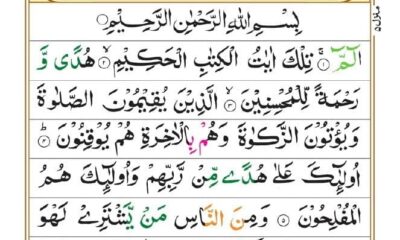 بِسْمِ اللهِ الرَّحْمٰنِ الرَّحِيْمِ
الٓمّٓ ۚ﴿۱﴾ تِلْكَ اٰيٰتُ الْكِتٰبِ الْحَكِيْمِ ۙ﴿۲﴾ هُدًى وَّ
رَحْمَةً لِّلْمُحْسِنِيْنَ ۙ﴿۳﴾ الَّذِيْنَ يُقِيْمُوْنَ الصَّلٰوةَ
وَيُؤْتُوْنَ الزَّكٰوةَ وَهُمْ بِالْاٰخِرَةِ هُمْ يُوْقِنُوْنَ ؕ﴿۴﴾
اُولٰٓئِكَ عَلٰى هُدًى مِّنْ رَّبِّهِمْ وَاُولٰٓئِكَ هُمُ
الْمُفْلِحُوْنَ ﴿۵﴾ وَمِنَ النَّاسِ مَنْ يَّشْتَرِيْ لَهْوَ